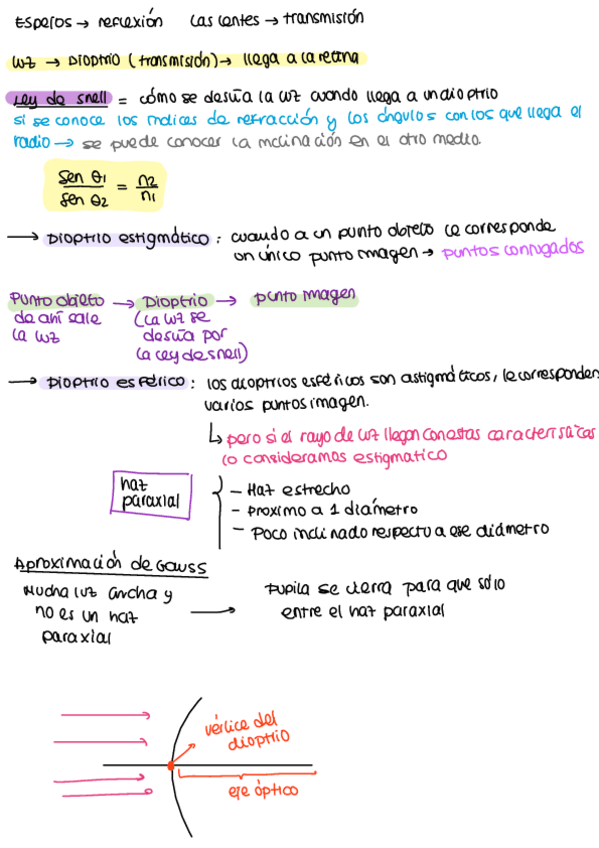 Espejos → reflexión   Las lentes → transmisión
luz → Dioptrio (transmisión) → llega a la retina
Ley de snell = cómo se desvía la luz cuando llega a un dioptrio
si se conoce los índices de refracción y los ángulos con los que llega el
radio → se puede conocer la inclinación en el otro medio.
sen θ1 / sen θ2 = n2 / n1
→ Dioptrio estigmático: cuando a un punto objeto le corresponde
un único punto imagen → puntos conjugados
Punto objeto → Dioptrio → punto imagen
de ahí sale (La luz se
la luz desvía por
la ley de snell)
→ Dioptrio esférico: los dioptrios esféricos son astigmáticos, le corresponden
varios puntos imagen.
↳ pero si el rayo de luz llegan con estas características
lo consideramos estigmatico
haz
paraxial
- Haz estrecho
- Proximo a 1 diámetro
- Poco inclinado respecto a ese diámetro
Aproximación de Gauss
Mucha luz ancha y
no es un haz
paraxial
→ Pupila se cierra para que sólo
entre el haz paraxial
vértice del
dioptrio
eje óptico